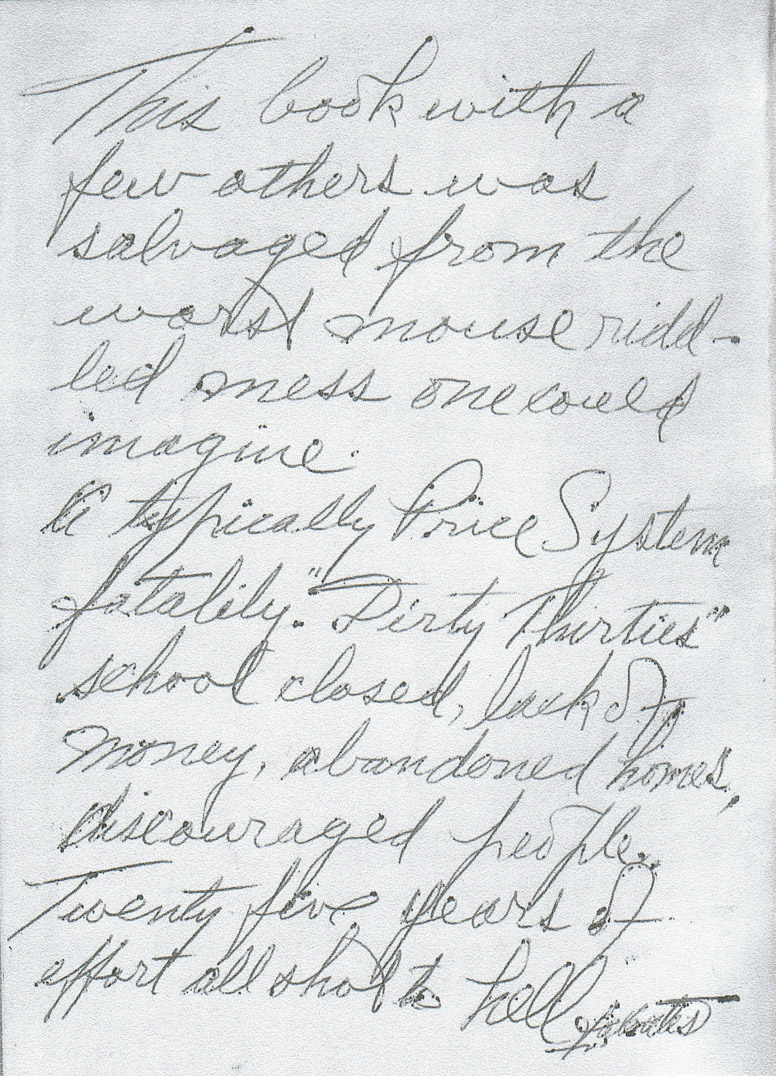 This book with a
few others was
salvaged from the
worst mouse ridd-
led mess one could
imagine.
A typically Price System
fatality. "Dirty Thirties"
school closed, lack of
money, abandoned homes,
discouraged people.
Twenty five years of
effort all shot to hell